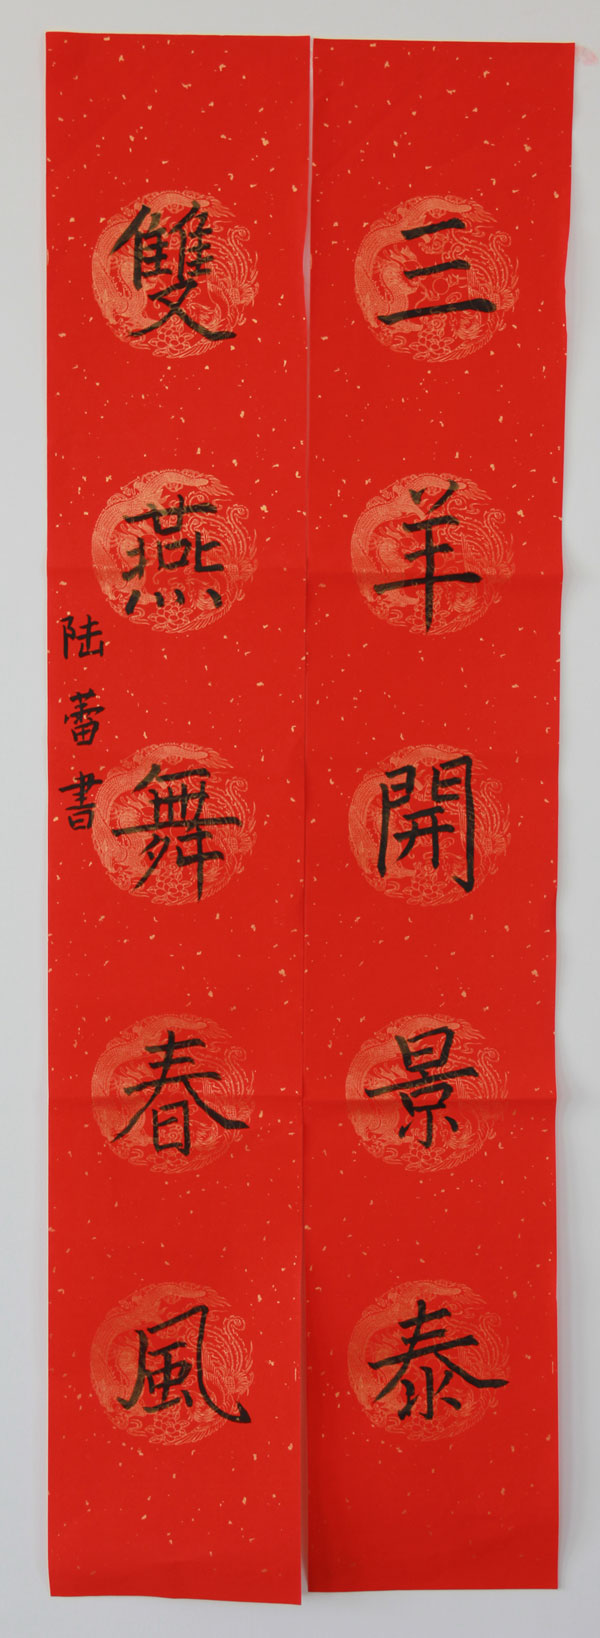 三羊開景泰
雙燕舞春風
陆蕾書